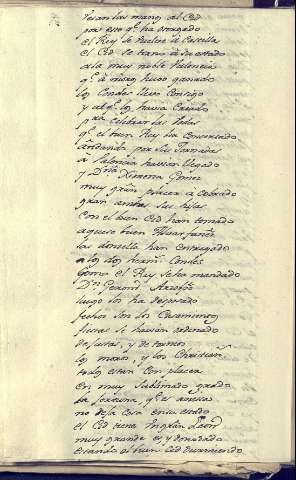 besan las manos al Cid
por esto q.e ha otorgado
el Rey se vuelve à Castilla
el Cid se torna à su estado
a la muy noble Valencia
q.e à moros huvo ganado
los Condes lleva consigo
y al q.e los havia criado
p.ra celebrar las bodas
q.e el buen Rey ha concertado
Andando por sus Jornadas
à Valencia havian llegado
y D.ña Ximena Gomez
muy gran placer à cobrado
gran ambas sus hijas
con el buen Cid han tomado
aquese buen Alvar fañez
las doncellas han entregado
a los dos herm.s Condes
como el Rey se ha mandado
D.n Geron.mo Arzobis
luego los ha desposado
fechos son los Casamientos
fiestas se havian ordenado
de justas, y de torneos
los moros, y los Christian.s
todos estan con placer
en muy sublimado grado
la fortuna, q.e es aviesa
no deja cosa en su estado
el Cid tiene un gran Leon
muy grande es y denodado
estando al buen Cid durmiendo